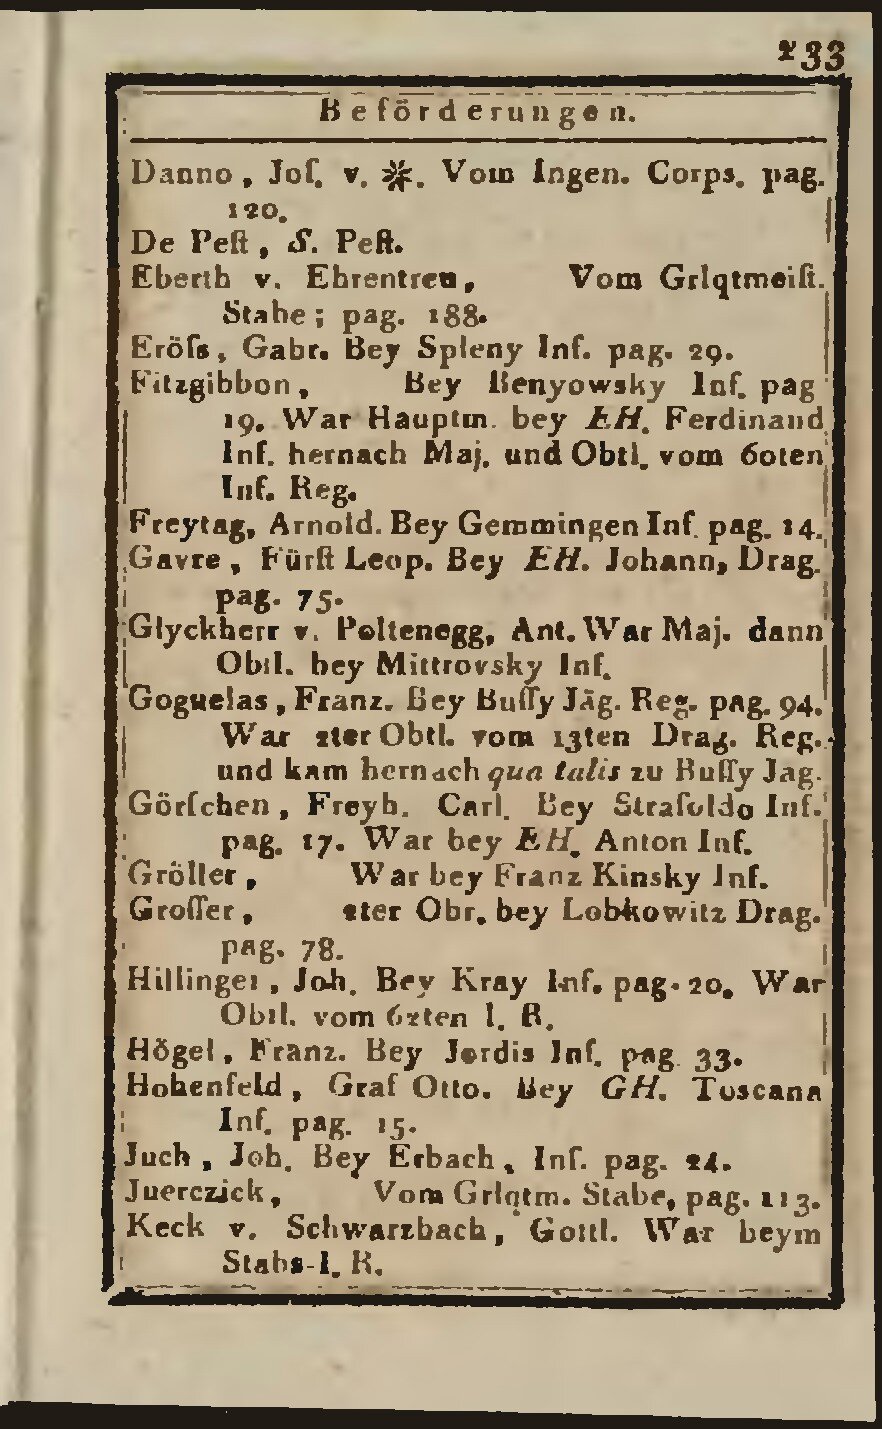 233
Beförderungen.
Danno, Joſ. v. ✠. Vom Ingen. Corps. pag.
120.
De Peſt, S. Peſt.
Eberth v. Ehrentreu, Vom Grlqtmeiſt.
Stabe; pag. 188.
Eröſs, Gabr. Bey Spleny Inf. pag. 29.
Fitzgibbon, Bey Benyowsky Inf. pag
19. War Hauptm. bey EH. Ferdinand
Inf. hernach Maj. und Obtl. vom 60ten
Inf. Reg.
Freytag, Arnold. Bey Gemmingen Inf. pag. 14.
Gavre, Fürſt Leop. Bey EH. Johann, Drag.
pag. 75.
Glyckherr v. Poltenegg, Ant. War Maj. dann
Obtl. bey Mittrovsky Inf.
Goguelas, Franz. Bey Buſſy Jäg. Reg. pag. 94.
War 2ter Obtl. vom 13ten Drag. Reg.
und kam hernach qua talis zu Buſſy Jag.
Görſchen, Freyh. Carl. Bey Straſoldo Inf.
pag. 17. War bey EH. Anton Inf.
Gröller, War bey Franz Kinsky Inf.
Groſſer, 2ter Obr. bey Lobkowitz Drag.
pag. 78.
Hillinger, Joh. Bey Kray Inf. pag. 20. War
Obtl. vom 62ten I. R.
Högel, Franz. Bey Jordis Inf. pag 33.
Hohenfeld, Graf Otto. Bey GH. Toscana
Inf. pag. 15.
Juch, Joh. Bey Erbach, Inf. pag. 24.
Juerczick, Vom Grlqtm. Stabe, pag. 113.
Keck v. Schwarzbach, Gottl. War beym
Stabs-I. R.